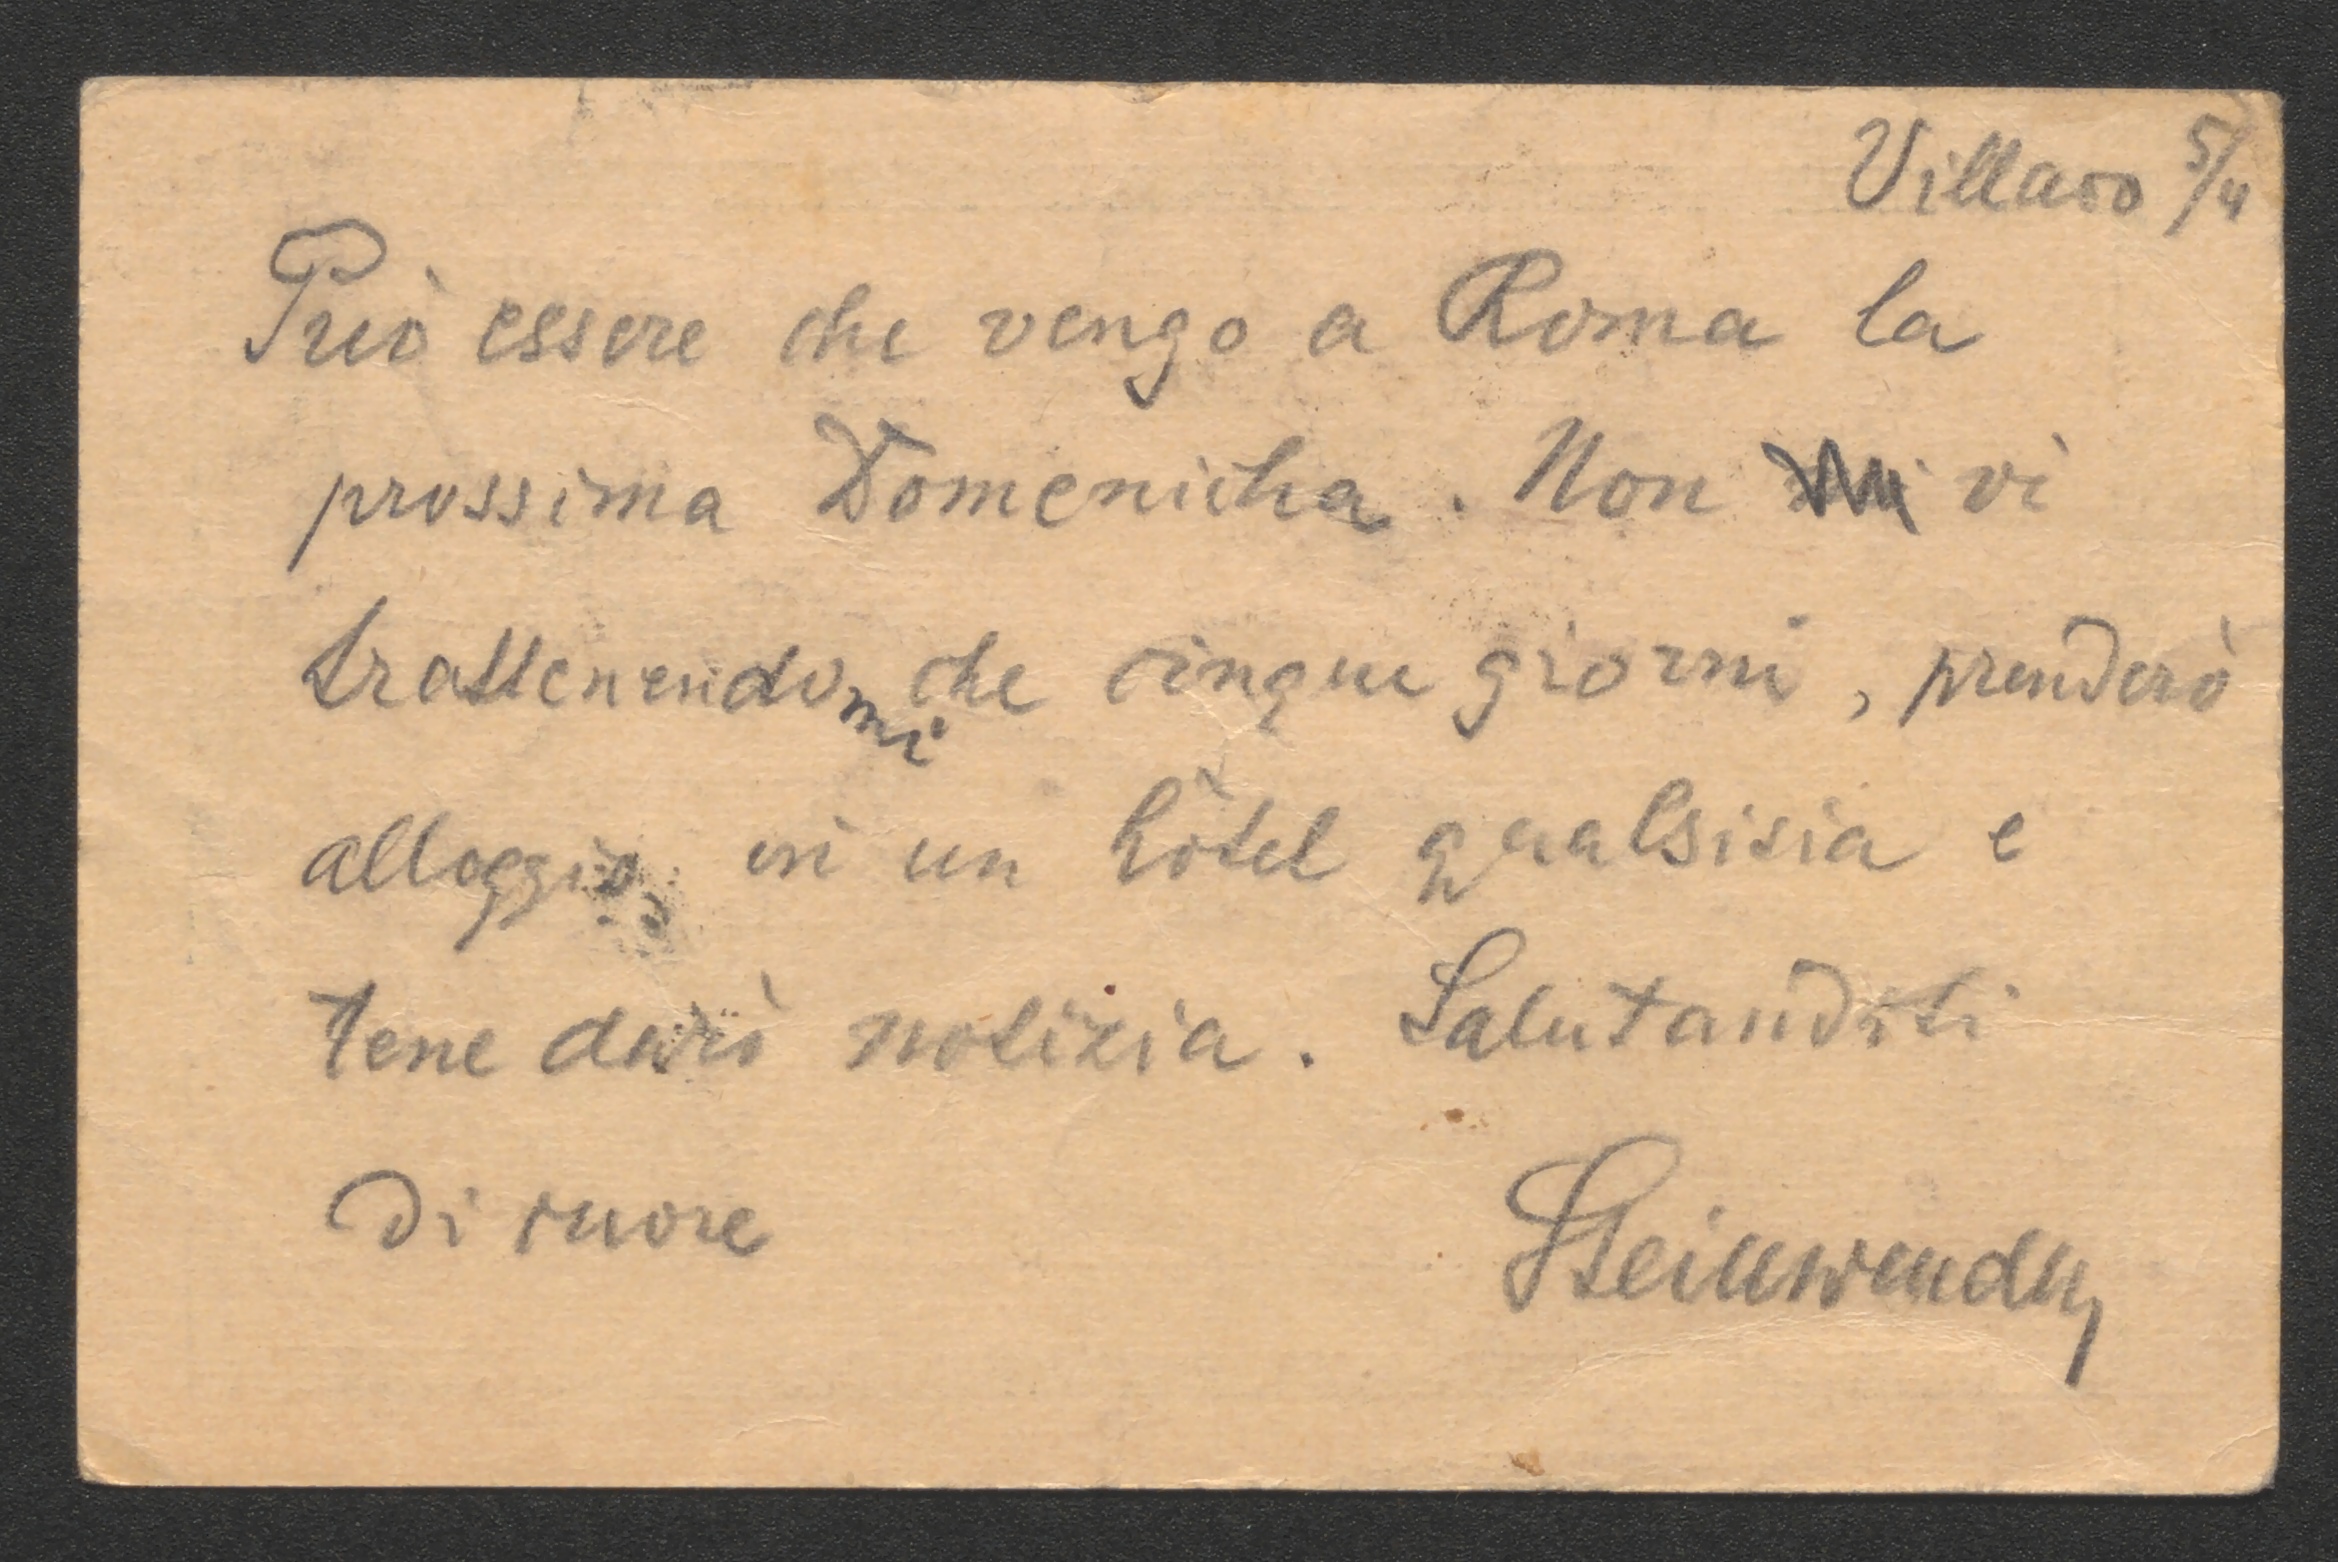 Villaro 5/4
Può essere che vengo a Roma la
prossima Domenicha. Non vi
trattenendomi che cinque giorni, prenderò
alloggio, in un hôtel qualsisia e
tene darò notizia. Salutandoti
di cuore